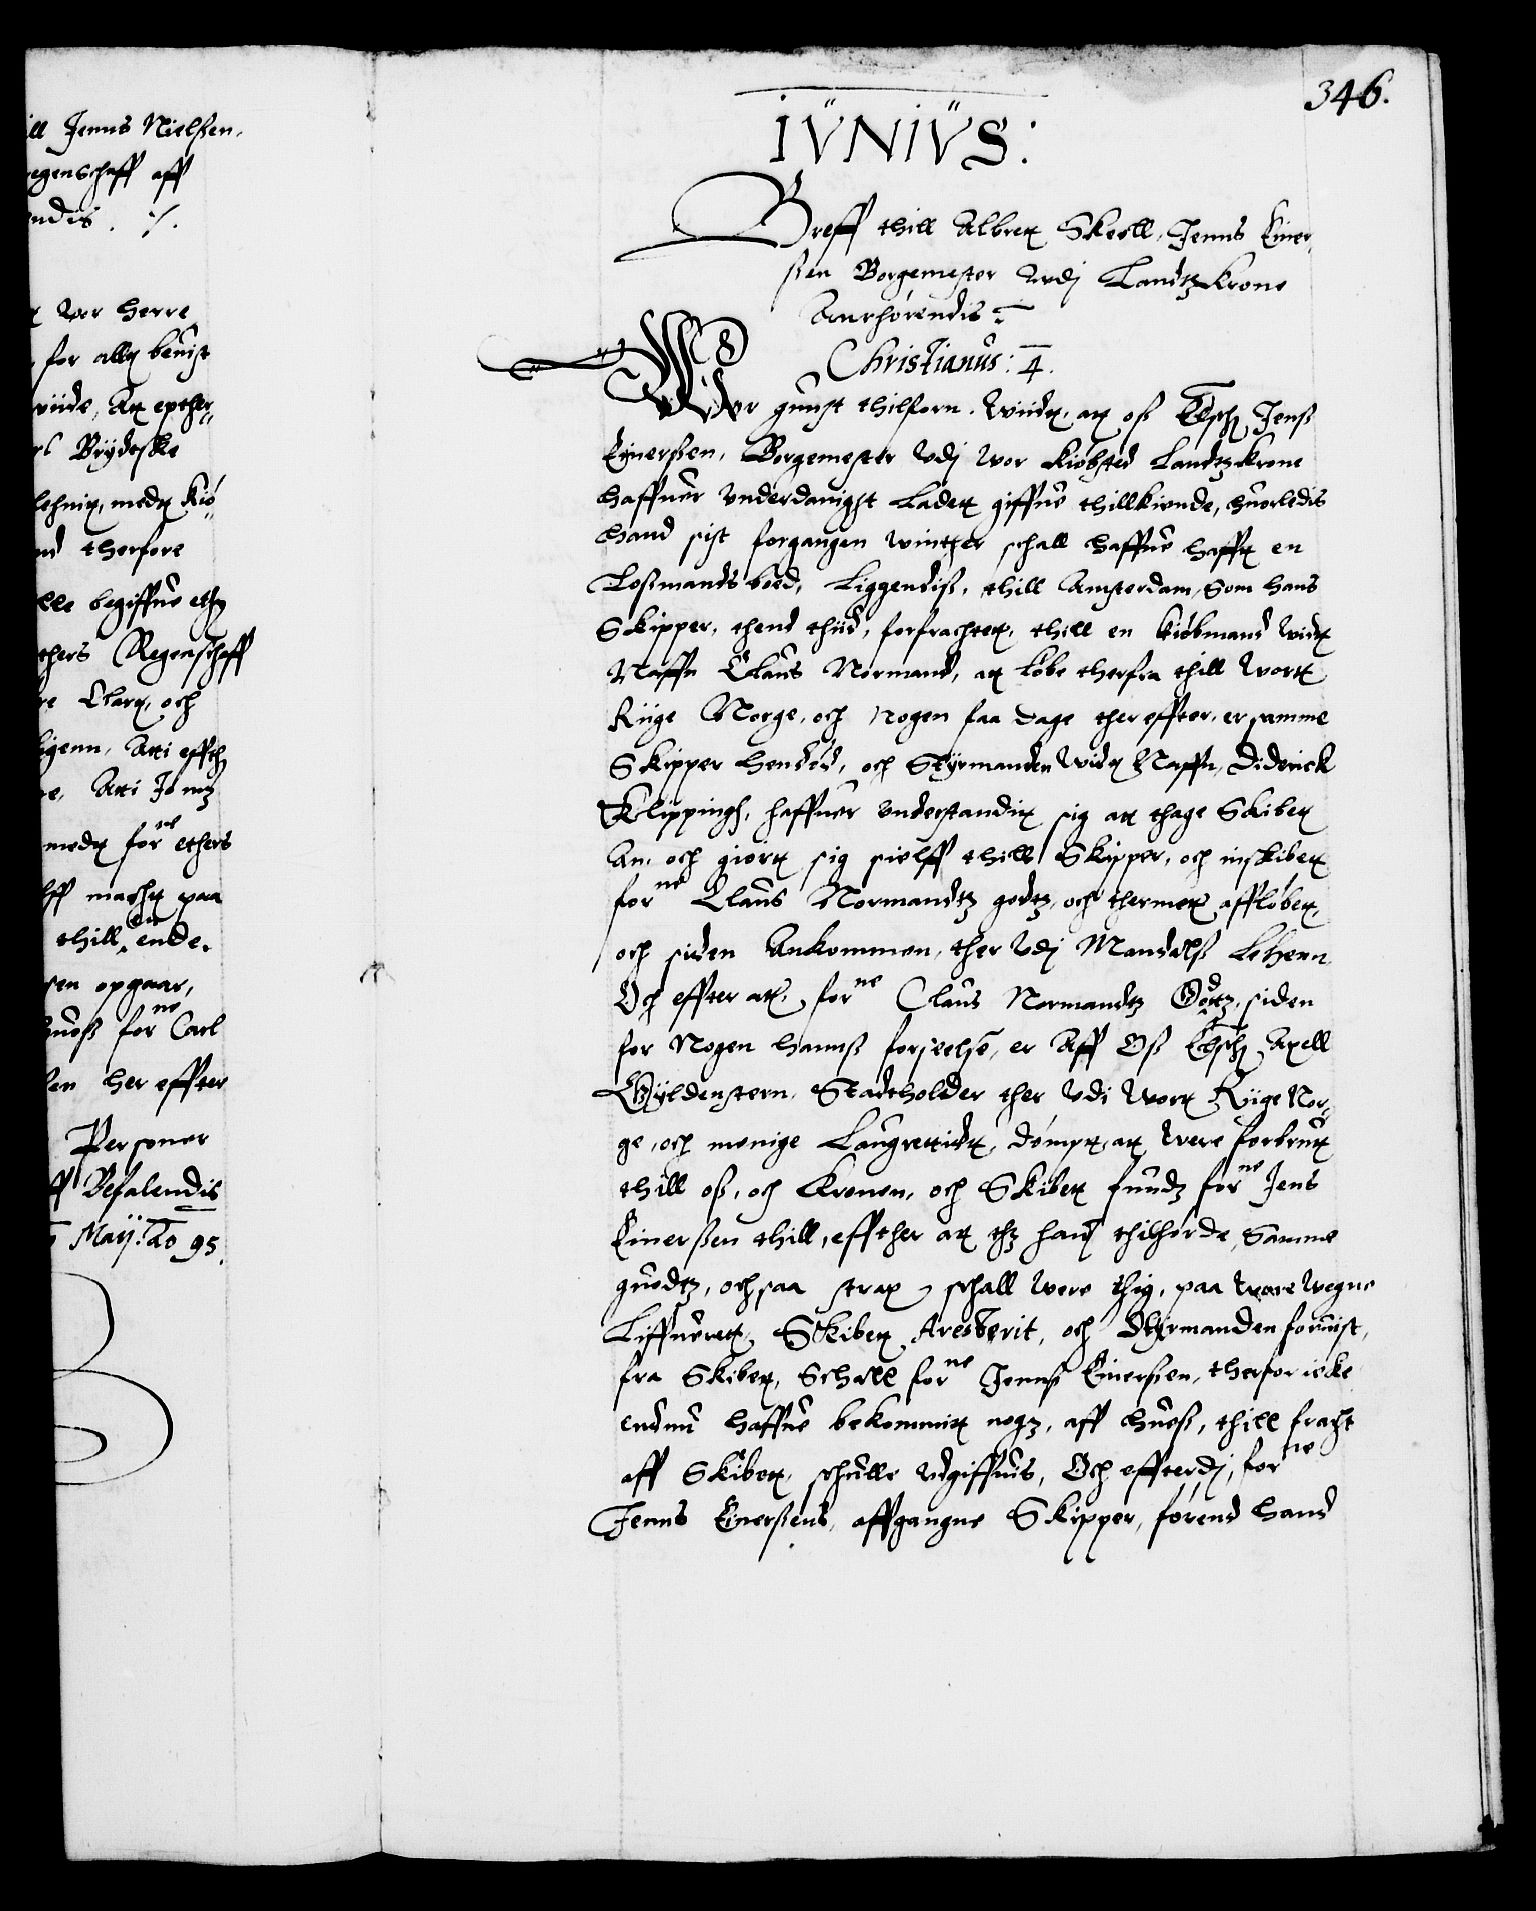 346.
ill Jenns Nielßen.
regenschaff aff
endis. ./.
wor herre
for alle beuist
wiide, At epther
Brÿdeske
lehnit, medt Kiø
nd therfore
lle begiffue eth
thers Regenschaff
re Clart, och
ligenn, Atti effth
e, Atti Jo mtz
medt forne ethers
ff macht paa
thill en ende.
sen opgaar,
huoß forne Carl
len her effter
Personer
ff Befalendis
Maij: Ao 95.
IVNIVS:
Breff thill Albret Skeell, Jenns Einer
ßen Borgemester udj Landtzkrone
Anrhørendis
Christianus: 4.
Wor gunst thilforn. Wiidt, at oß Elsch Jenß
Eÿnerßen, Borgemester Udj wor Kiøbsted Landtzkrone
haffuer underdanigst Ladet giffue thillkiende, huorledis
hand sist forgangen winther schall haffue hafft en
Boßmandsboed, Liggendiß, thill Amsterdam, Som hans
Skipper, thend thiid, forfrachtet, thill en kiøbmand widt
Naffn Claus Normand, at løbe therfra thill wort
Riige Norge, och Nogen faa dage ther effter, er samme
Skipper hendød, och Stÿrmanden widt Naffn, Diderick
Klippingh, haffuer understandit sig at thage Skibet
An, och giort sig sielff thill Skipper, och inskibet
forne Claus Normandtz godtz, och thermet affløbet,
och siden Ankommen, ther Udj Mandalß Lehenn
Och effter at, forne Claus Normandtz Godtz, siden
for Nogen hannß forseelse, er Aff Oß Elsch Axell
Gÿldenstern, Stadtholder ther Udi wort Riige Nor
ge, och menige Laugrettidt, dømpt, at were forbrut
thill oß, och Kronen, och Skibet fundtz forne Jens
Einerßen thill, effther at thz hand thilhørde, Samme
guodtz, och saa strax schall were thig, paa wore wegne
Liffueret, Skibet Aresterit, och Stÿrmanden foruist,
fra Skibet, Schall forne Jennß Einerßen, therfor icke
endnu haffue bekommit nogz, aff huoß, thill fracht
aff Skibet, schulle udgiffuis, Och effterdj, forne
Jenns Einerßens, affgangne Skipper, førend hand